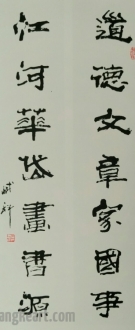 道德文章家國事
江河華岱畫書源
angheart.com